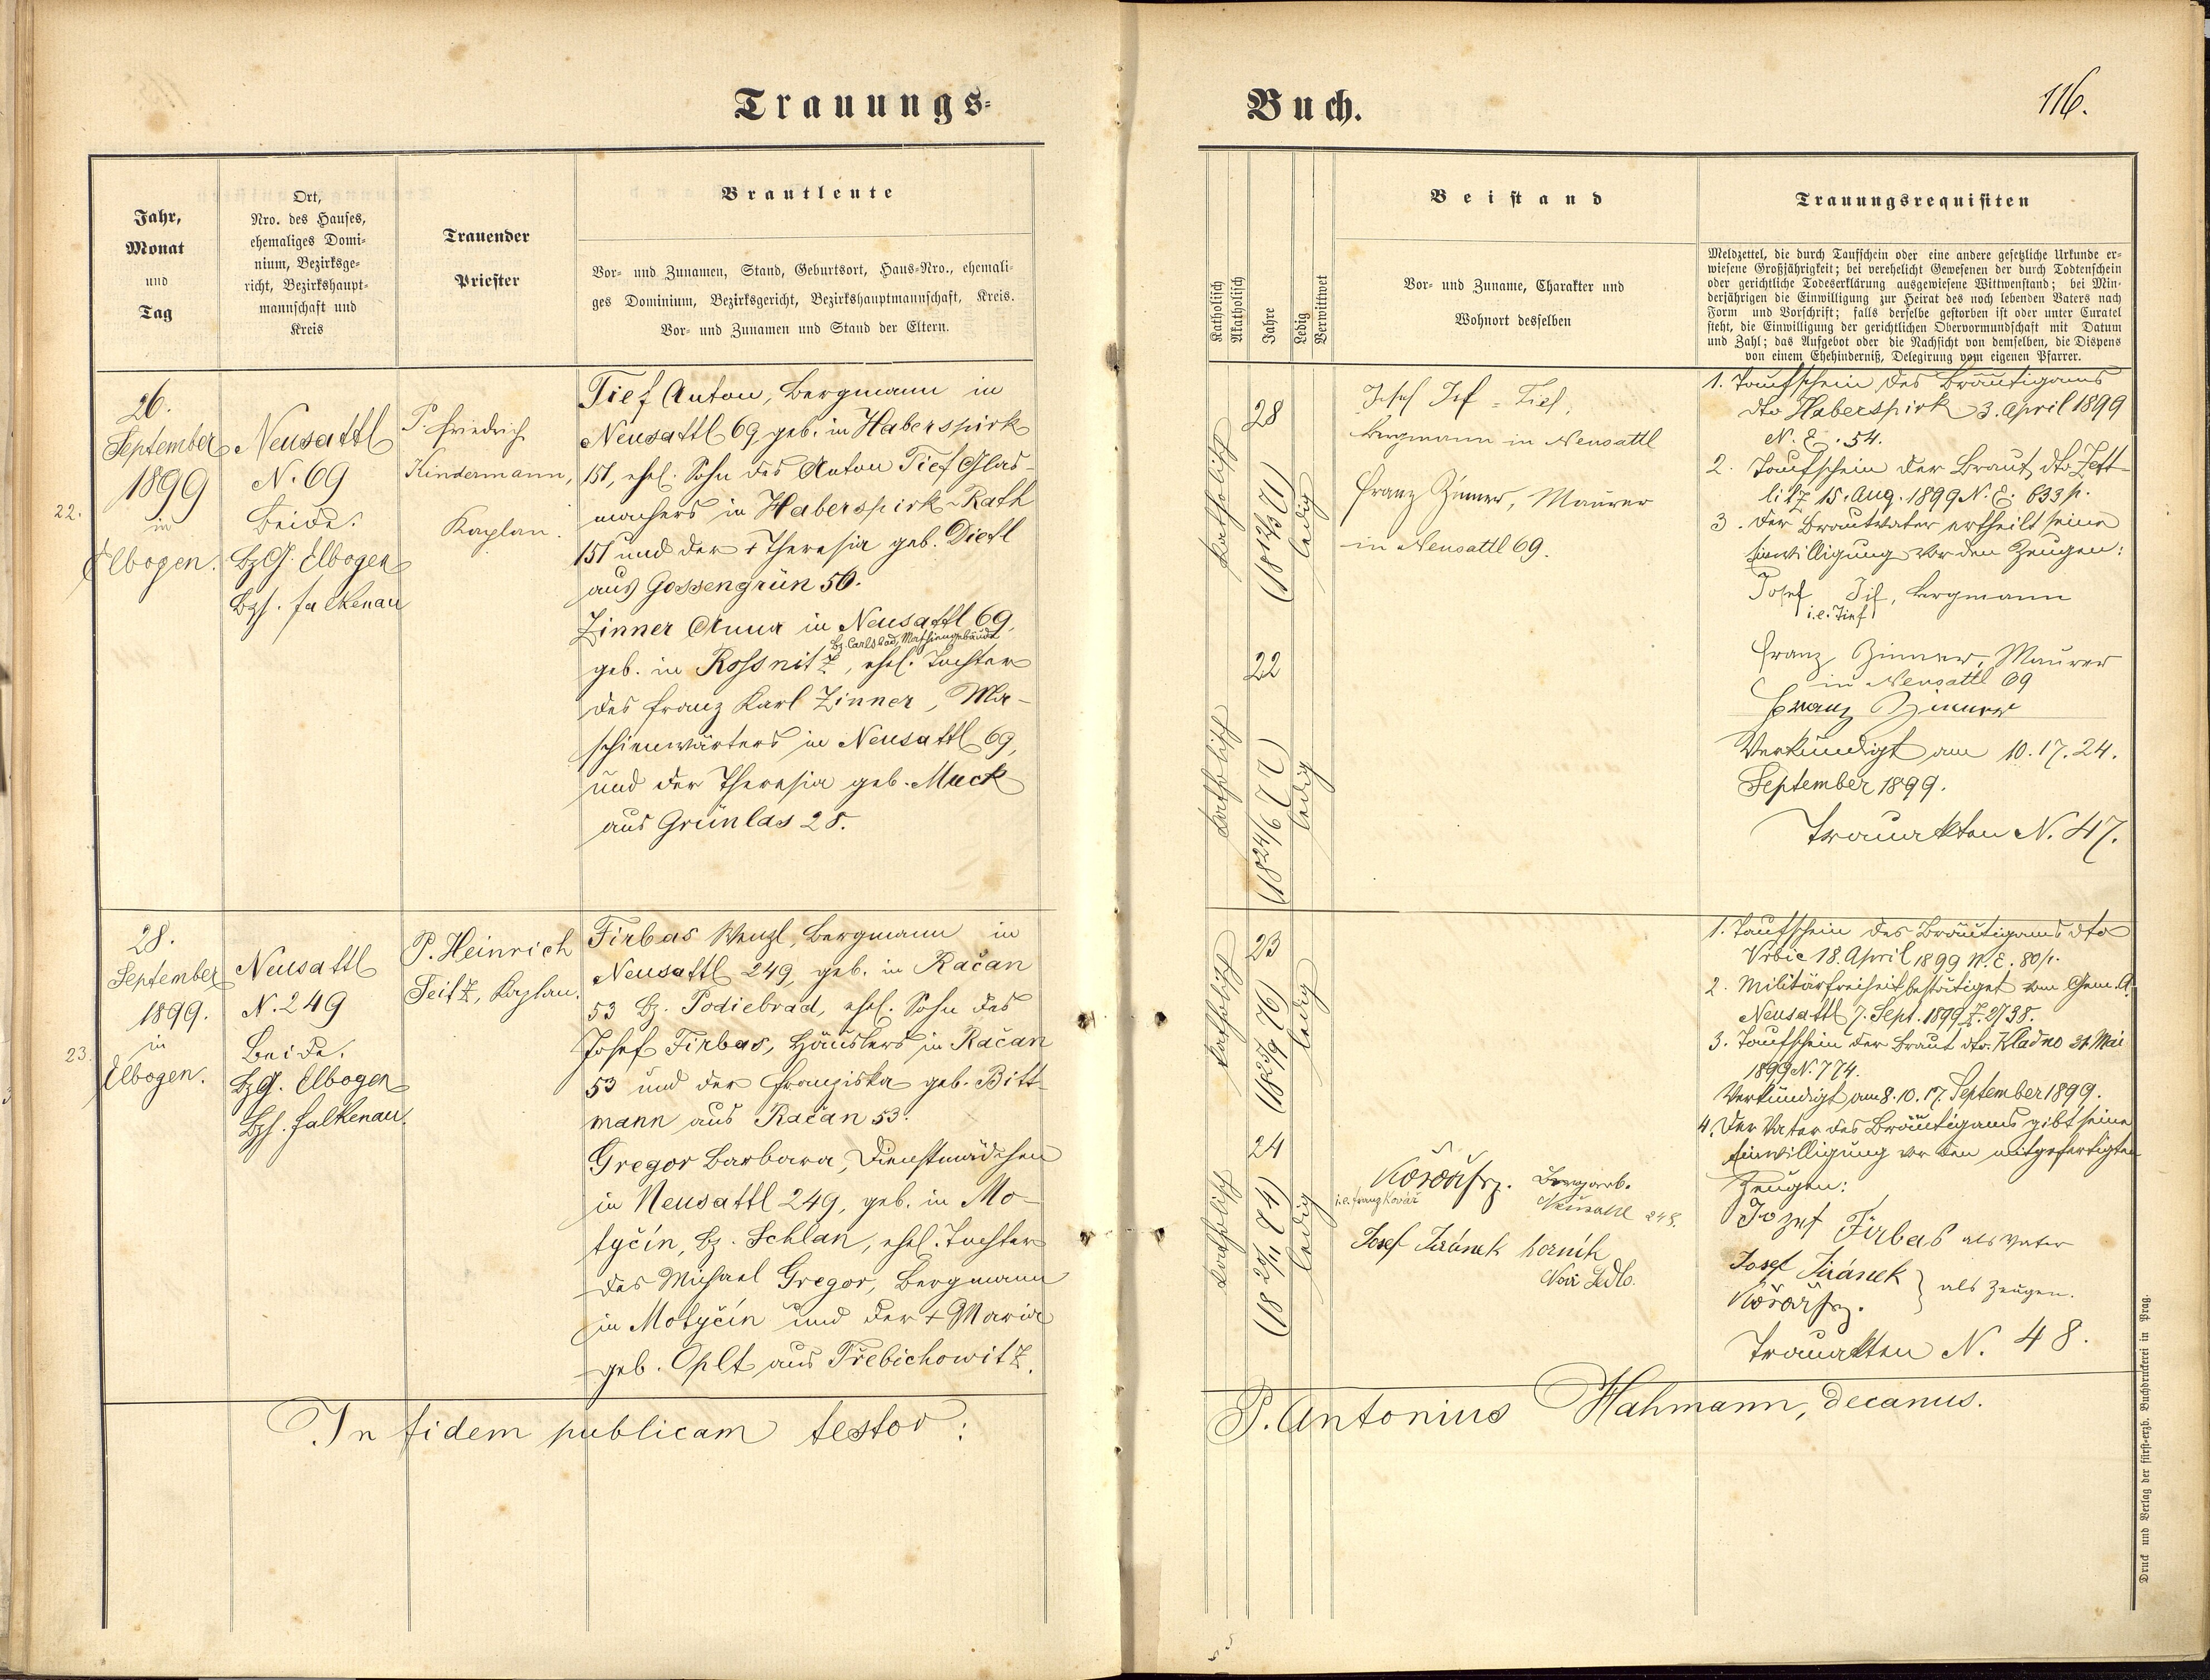 Trauungs-
Buch.
116.
Jahr,
Monat
und
Tag
Ort,
Nro. des Hauses,
ehemaliges Domi-
nium, Bezirksge-
richt, Bezirkshaupt-
mannschaft und
Kreis
Trauender
Priester
Brautleute
Vor- und Zunamen, Stand, Geburtsort, Haus-Nro., ehemali-
ges Dominium, Bezirksgericht, Bezirkshauptmannschaft, Kreis.
Vor- und Zunamen und Stand der Eltern.
Katholisch
Akatholisch
Jahre
Ledig
Verwittwet
Beistand
Vor- und Zuname, Charakter und
Wohnort desselben
Trauungsrequisiten
Meldzettel, die durch Taufschein oder eine andere gesetzliche Urkunde er-
wiesene Großjährigkeit; bei verehelicht Gewesenen der durch Todtenschein
oder gerichtliche Todeserklärung ausgewiesene Wittwenstand; bei Min-
derjährigen die Einwilligung zur Heirat des noch lebenden Vaters nach
Form und Vorschrift; falls derselbe gestorben ist oder unter Curatel
steht, die Einwilligung der gerichtlichen Obervormundschaft mit Datum
und Zahl; das Aufgebot oder die Nachsicht von demselben, die Dispens
von einem Ehehinderniß, Delegirung vom eigenen Pfarrer.
22.
26.
September
1899
in
Elbogen.
Neusattl
N. 69
beide.
BzG. Elbogen
Bzh. Falkenau
P. Friedrich
Kindermann,
Kaplan.
Tief Anton, Bergmann in
Neusattl 69, geb. in Haberspirk
151, ehel. Sohn des Anton Tief Glas-
machers in Haberspirk-Rath
151 und der + Theresia geb. Dietl
aus Gossengrün 56.
Zinner Anna in Neusattl 69,
Bz. Carlsbad, Maschiengebäude
geb. in Rossnitz, ehel. Tochter
des Franz Karl Zinner, Ma-
schienwärters in Neusattl 69,
und der Theresia geb. Muck
aus Grünlas 28.
katholisch
28
(18 12/3 71)
ledig
katholisch
22
(18 24/6 77)
ledig
Josef Tif = Tief,
Bergmann in Neusattl
Franz Zinner, Maurer
in Neusattl 69.
1. Taufschein des Bräutigams
dto Haberspirk 3. April 1899
N. E. 54.
2. Taufschein der Braut, dto Zett-
litz 15. Aug. 1899 N. E. 633 p.
3. Der Brautvater ertheilt seine
Einwilligung vor den Zeugen:
Josef Tif, Bergmann
i. e. Tief
Franz Zinner, Maurer
in Neusattl 69
Franz Zinner
Verkündigt am 10. 17. 24.
September 1899.
Trauakten N. 47.
23.
28.
September
1899.
in
Elbogen.
Neusattl
N. 249
Beide.
BzG. Elbogen
Bzh. Falkenau.
P. Heinrich
Seitz, Kaplan.
Firbas Wenzl, Bergmann in
Neusattl 249, geb. in Račan
53 Bz. Podiebrad, ehel. Sohn des
Josef Firbas, Häuslers in Račan
53 und der Franziska geb. Bitt-
mann aus Račan 53.
Gregor Barbara, Dienstmädchen
in Neusattl 249, geb. in Mo-
tyčin, Bz. Schlan, ehel. Tochter
des Michael Gregor, Bergmann
in Motyčin und der + Maria
geb. Oplt aus Třebichowitz.
katholisch
23
(18 25/9 76)
ledig
katholisch
24
(18 25/11 74)
ledig
Kovář frz. Bergarb.
i. e. Franz Kovář
Neusattl 248.
Josef Jiránek horník
Nové Sedlo.
1. Taufschein des Bräutigams dto
Vrbic 18. April 1899 N. E. 80/1.
2. Militärfreiheit bestätiget vom Gem. A.
Neusattl 7. Sept. 1899 Z. 2738.
3. Taufschein der Braut dto. Kladno 31 Mai
1899 N. 774.
Verkündigt am 8. 10. 17. September 1899.
4. Der Vater des Bräutigams gibt seine
Einwilligung vor den mitgefertigten
Zeugen:
Jozef Firbas als Vater
Josef Jiránek
Kovář frz.
als Zeugen.
Trauakten N. 48.
In fidem publicam testor:
P. Antonius Hahmann, decanus.
Druck und Verlag der fürst-erzb. Buchdruckerei in Prag.